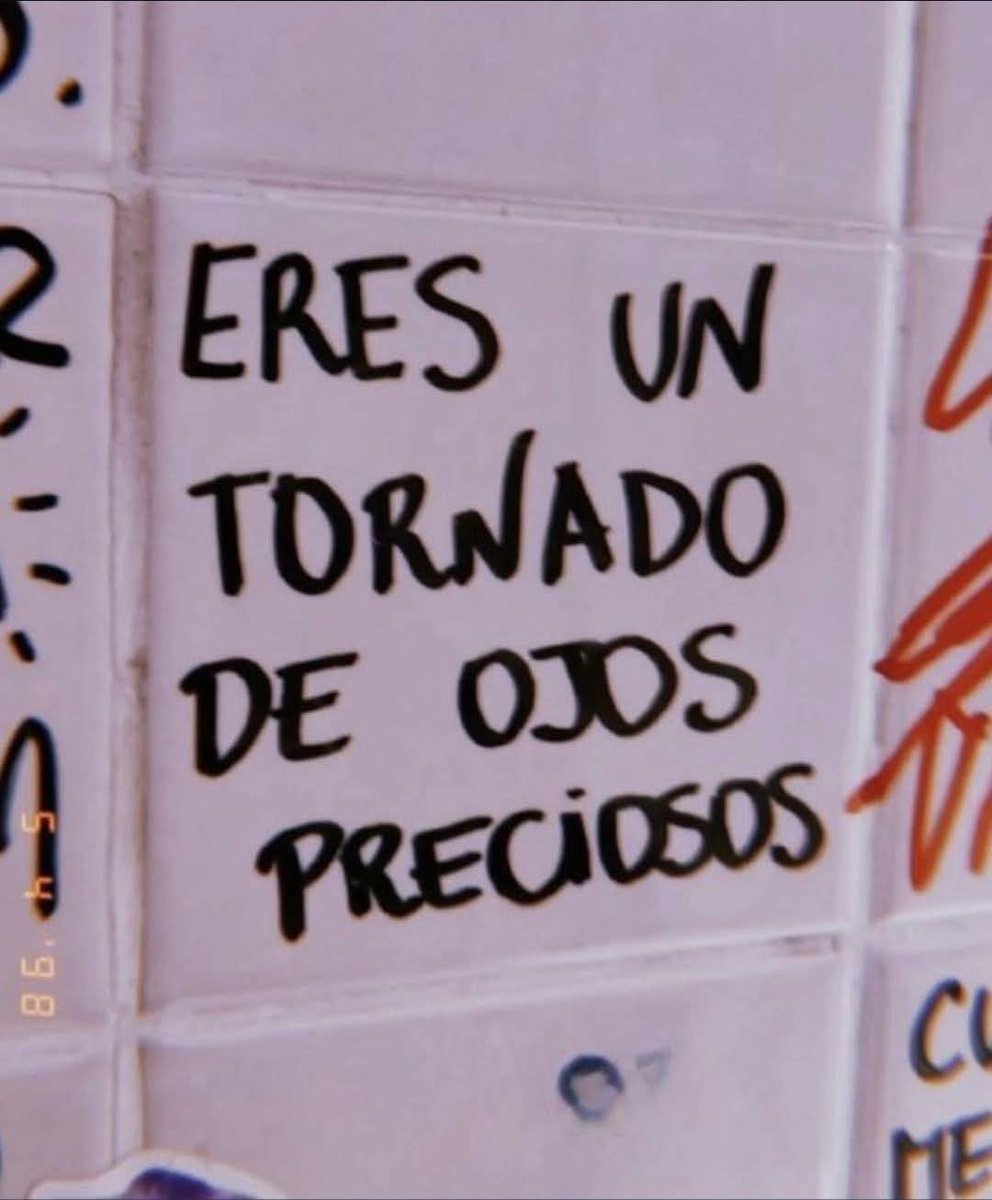 ERES UN
TORNADO
DE OJOS
PRECIOSOS
5 4 '98